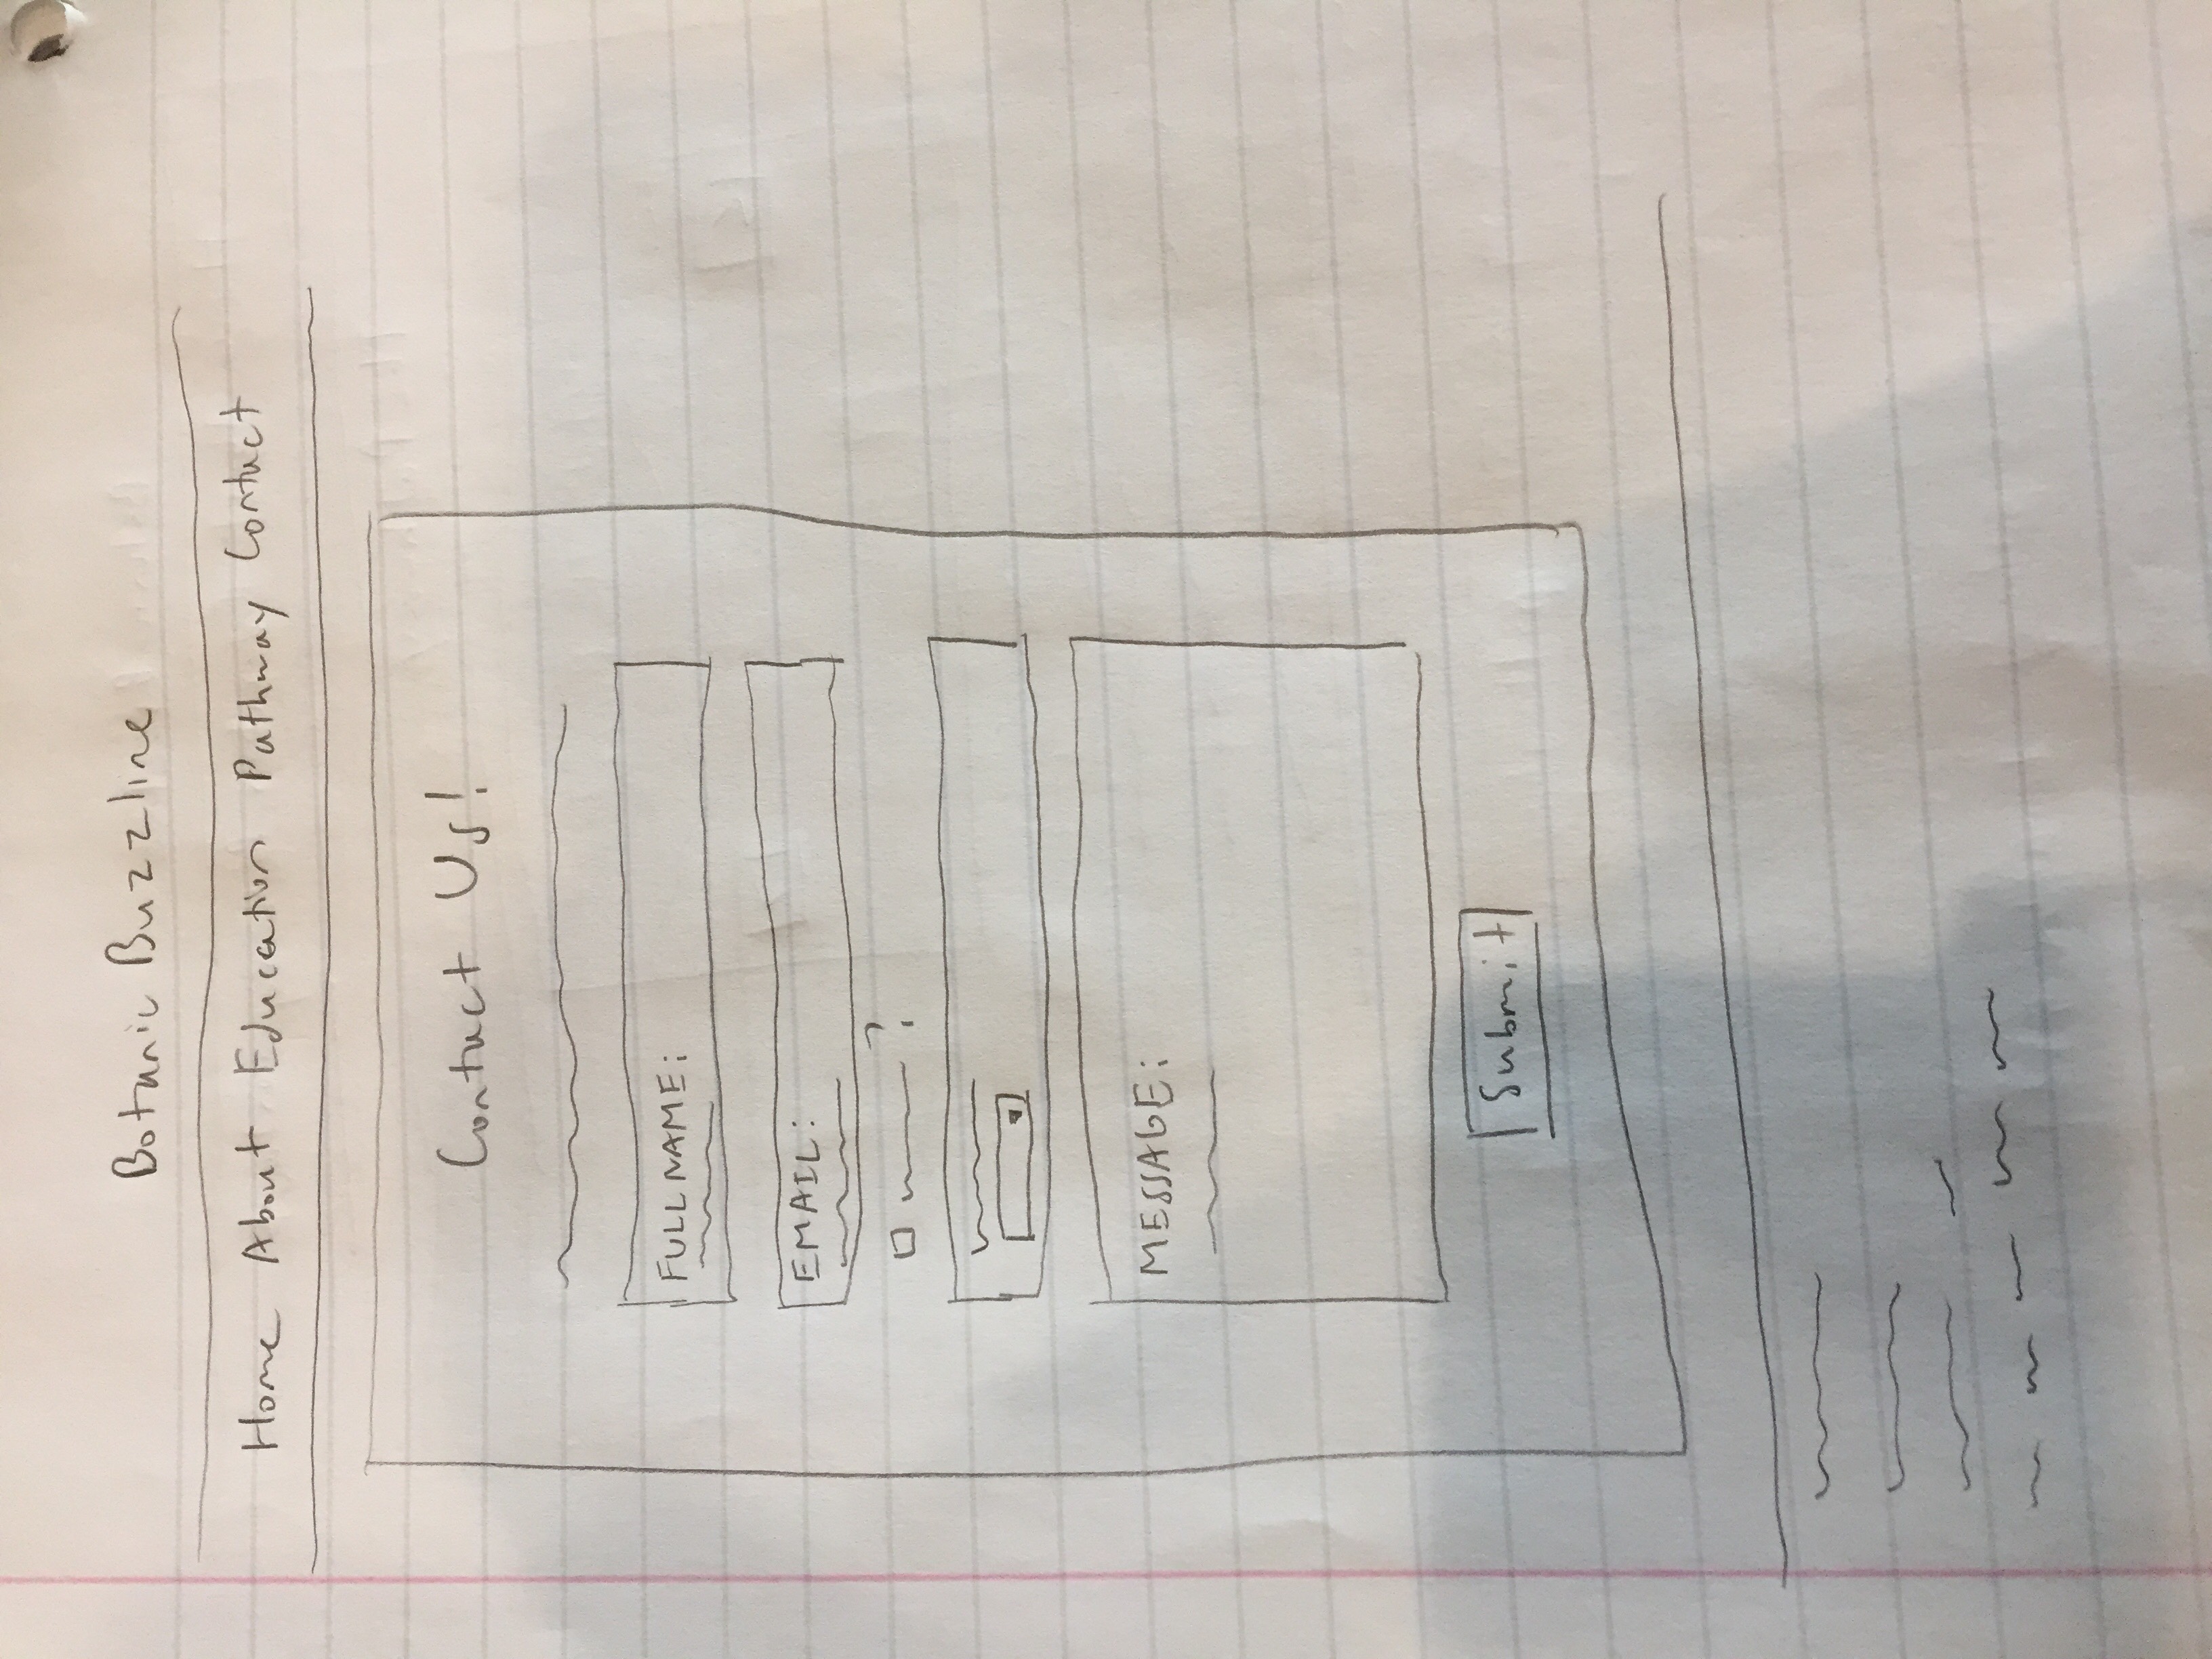 Botanic Buzzline
Home About Education Pathway Contact
Contact Us!
FULL NAME:
EMAIL:
?
MESSAGE:
Submit